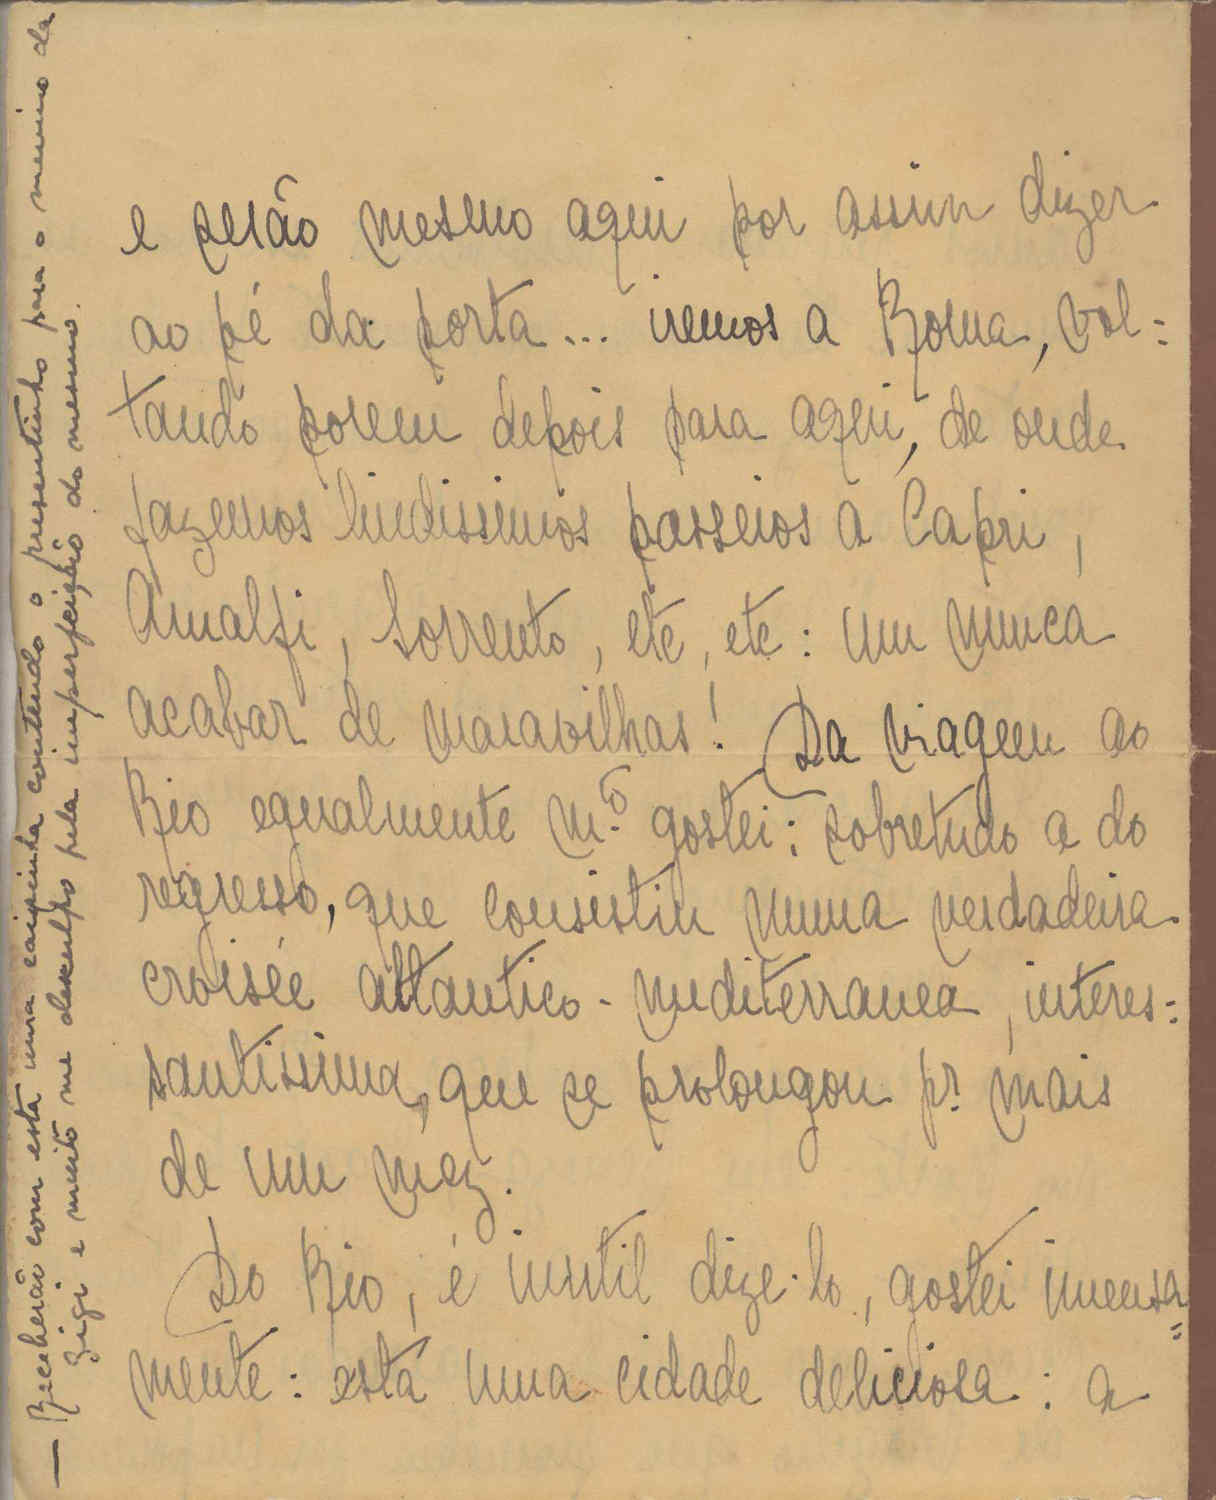 e serão mesmo aqui por assim dizer
ao pé da porta... iremos a Roma, vol=
tando porem depois para aqui, de onde
fazemos lindissimos passeios a Capri,
Amalfi, Sorrento, etc, etc: um nunca
acabar de maravilhas! Da viagem ao
Rio egualmente mᵗᵒ gostei: sobretudo a do
regresso, que consistiu numa verdadeira
croisée atlantico-mediterranea, interes=
santissima, que se prolongou pʳ mais
de um mez.
Do Rio, é inutil dize-lo, gostei imensa
mente: está uma cidade deliciosa: a
— Receberão com esta uma caixinha contendo o presentinho para o menino da
Zigi e muito me desculpo pela imperfeição do mesmo.